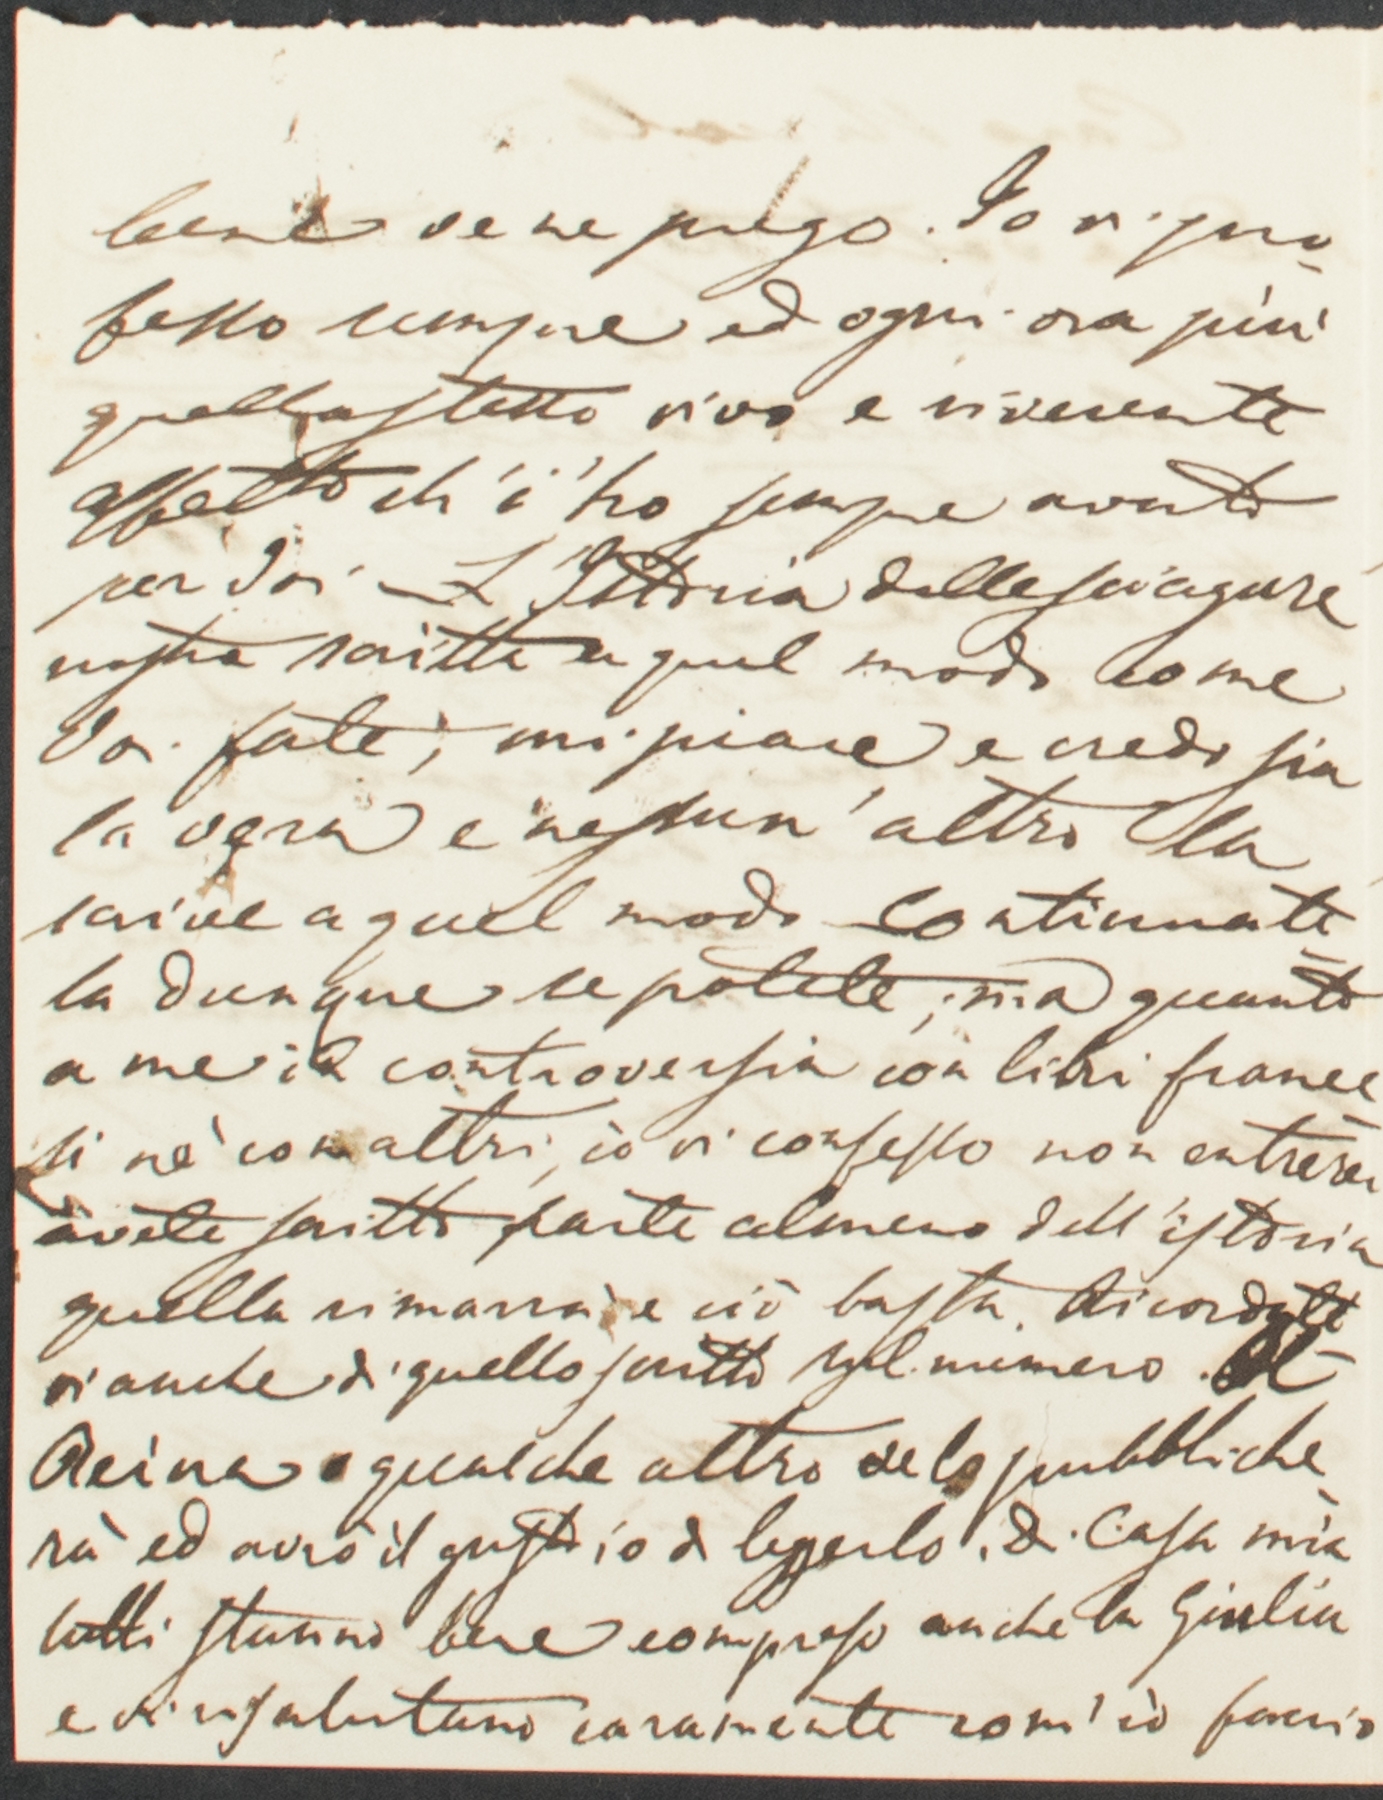 bene ve ne prego. Io vi pro-
fesso sempre ed ogni ora più
quello stesso vivo e riverente
affetto ch'i' ho sempre avuto
per Voi – L'Istoria delle sciagure
nostre scritta a quel modo come
Voi fate, mi piace e credo sia
la vera e nessun'altro la
scrive a quel modo continuate-
la dunque se potete; ma quanto
a me in controversia con libri france-
si nè con altri, io vi confesso non entrerei
avete scritto parte almeno dell'istoria
quella rimarrà e ciò basta. Ricordate-
vi anche di quello scritto sul numero. Il
Reina o qualche altro ve lo pubbliche-
rà ed avrò il gusto io di leggerlo. Di Casa mia
tutti stanno bene compreso anche la Giulia
e vi risalutano caramente com' io faccio